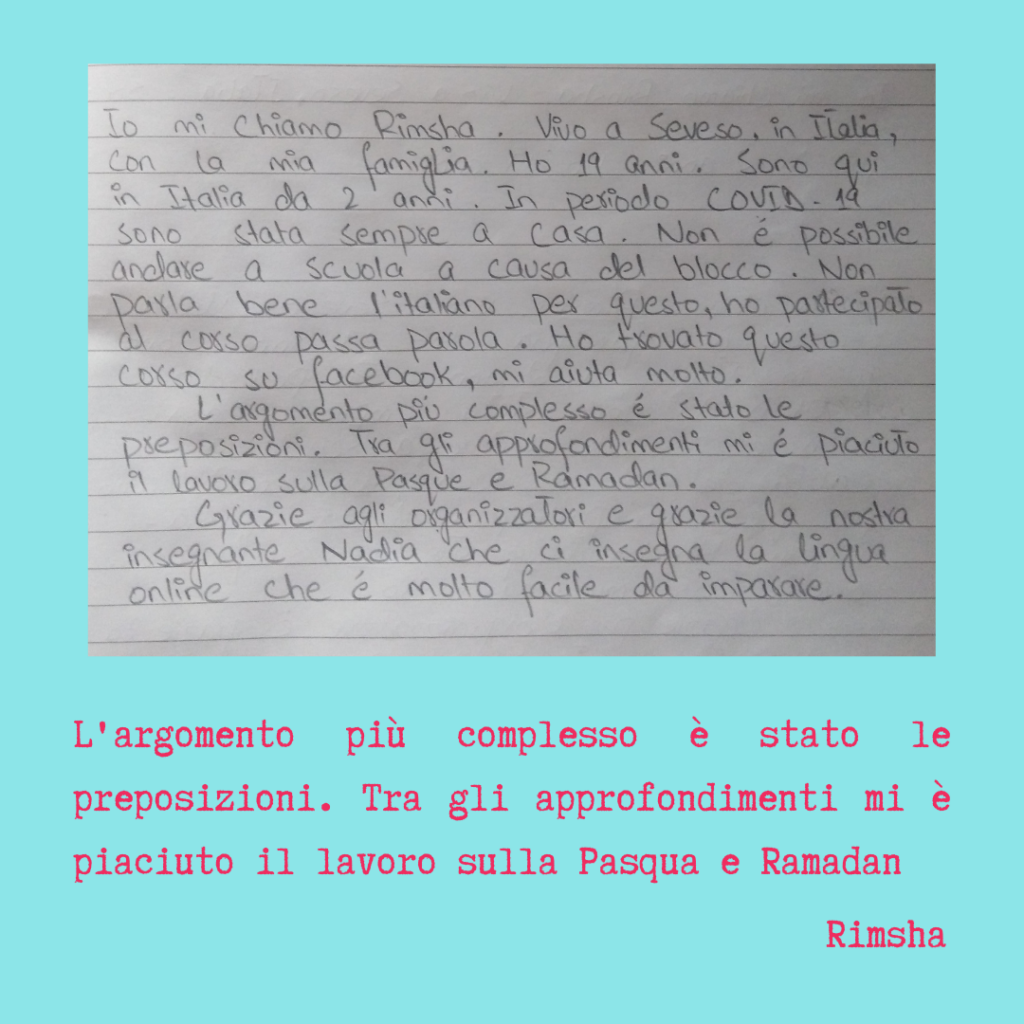 Io mi chiamo Rimsha. Vivo a Seveso, in Italia,
con la mia famiglia. Ho 19 anni. Sono qui
in Italia da 2 anni. In periodo COVID-19
sono stata sempre a casa. Non é possibile
andare a scuola a causa del blocco. Non
parla bene l'italiano per questo, ho partecipato
al corso passa parola. Ho trovato questo
corso su facebook, mi aiuta molto.
L'argomento piú complesso é stato le
preposizioni. Tra gli approfondimenti mi é piaciuto
il lavoro sulla Pasque e Ramadan.
Grazie agli organizzatori e grazie la nostra
insegnante Nadia che ci insegna la lingua
online che é molto facile da imparare.
L'argomento più complesso è stato le
preposizioni. Tra gli approfondimenti mi è
piaciuto il lavoro sulla Pasqua e Ramadan
Rimsha